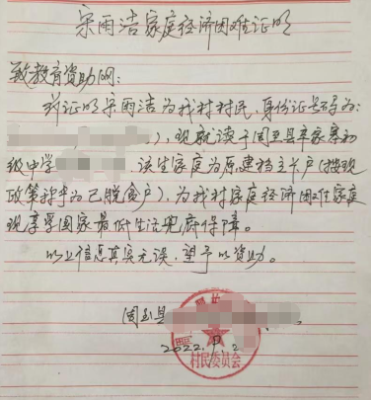 宋雨洁家庭经济困难证明
致教育资助网：
兹证明宋雨洁为我村村民，身份证号码为：
），现就读于固 县 初
级中学 。该生家庭为原建档立卡户（按现
政策称为已脱贫户），为我村家庭经济困难家庭
现享受国家最低生活 保障。
以上信息真实无误，望予以资助。
县
2022
村民委员会